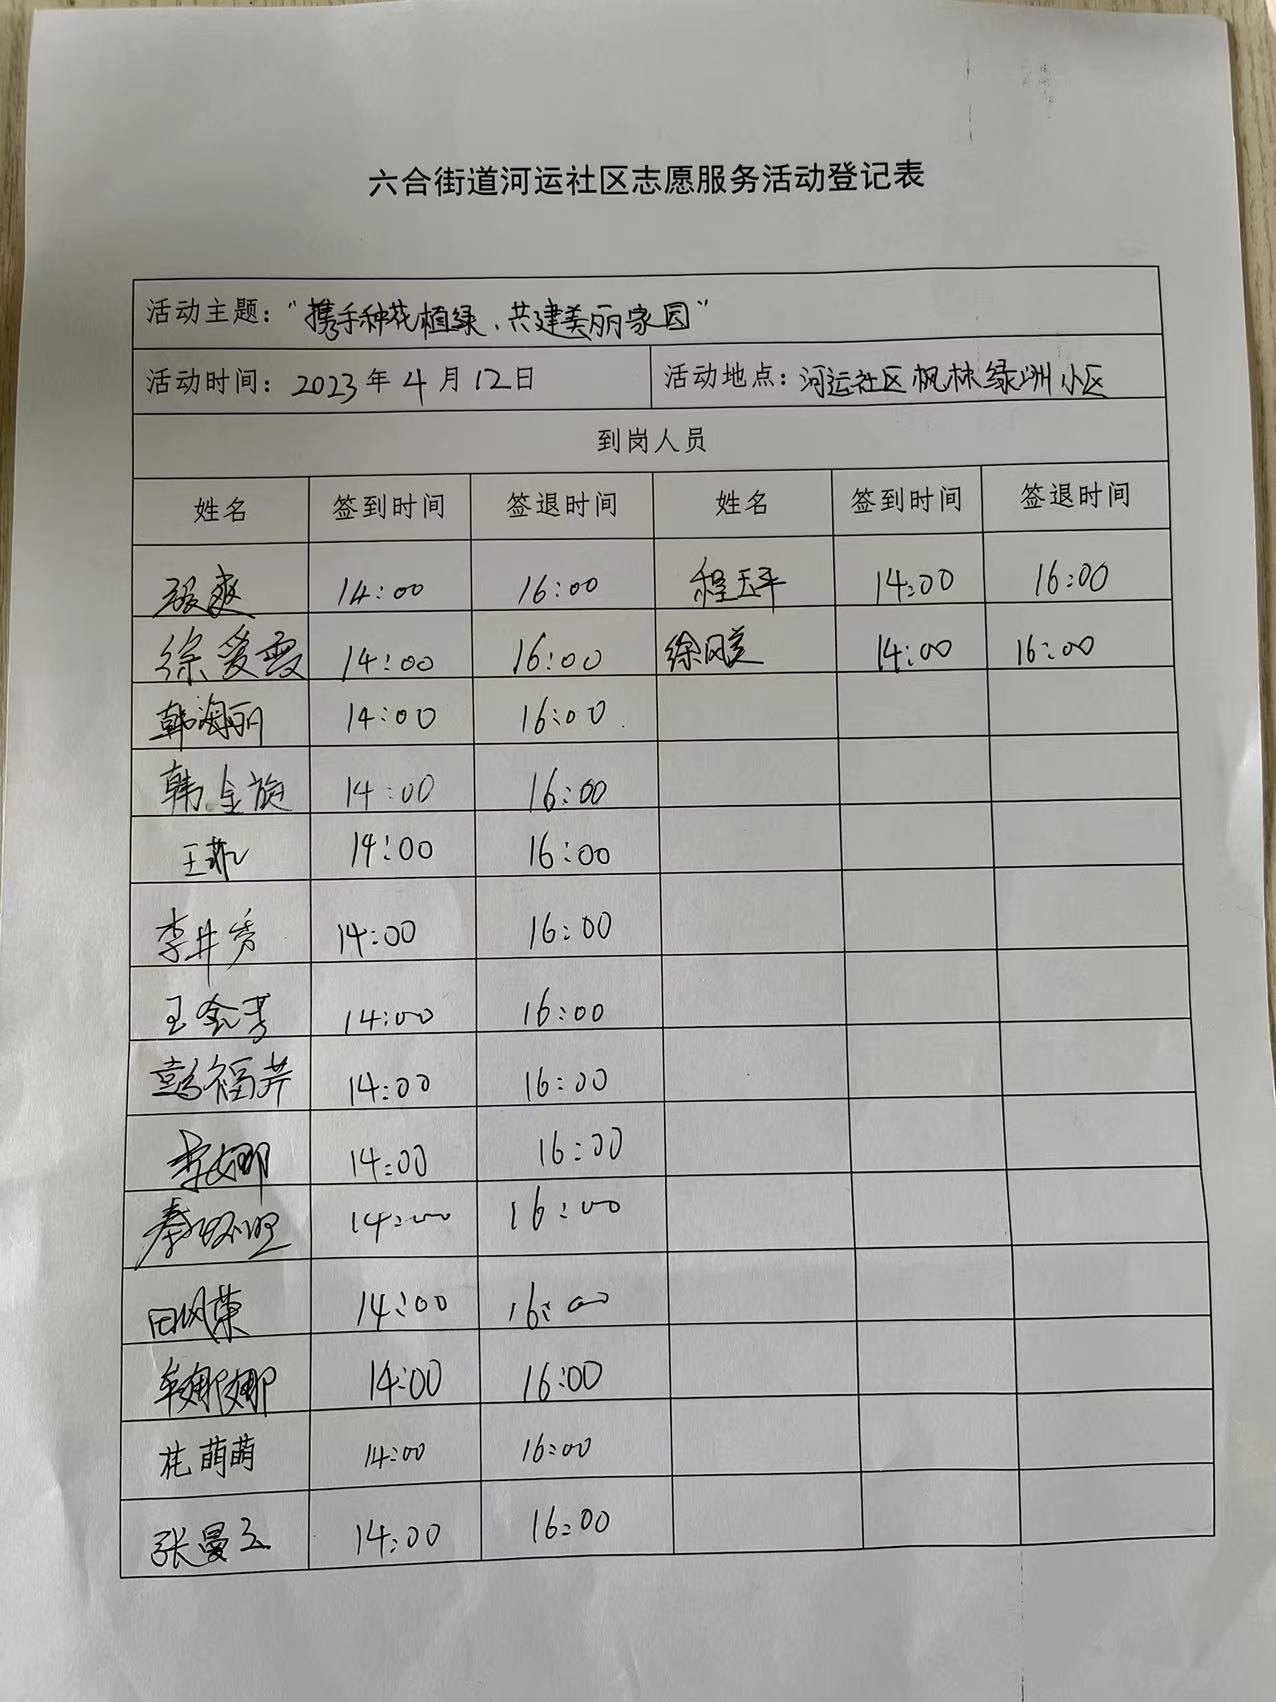 六合街道河运社区志愿服务活动登记表
活动主题:“携手种花植绿、共建美丽家园”
活动时间: 2023年4月12日 活动地点: 河运社区枫林绿洲小区
到岗人员
姓名 签到时间 签退时间 姓名 签到时间 签退时间
张爽 14:00 16:00 程玉平 14:00 16:00
徐爱霞 14:00 16:00 徐风美 14:00 16:00
韩海丽 14:00 16:00
韩金旋 14:00 16:00
王菲 14:00 16:00
李井秀 14:00 16:00
王金芳 14:00 16:00
彭福芹 14:00 16:00
李娜 14:00 16:00
秦 14:00 16:00
田凤荣 14:00 16:00
牟娜娜 14:00 16:00
杜萌萌 14:00 16:00
张曼玉 14:00 16:00